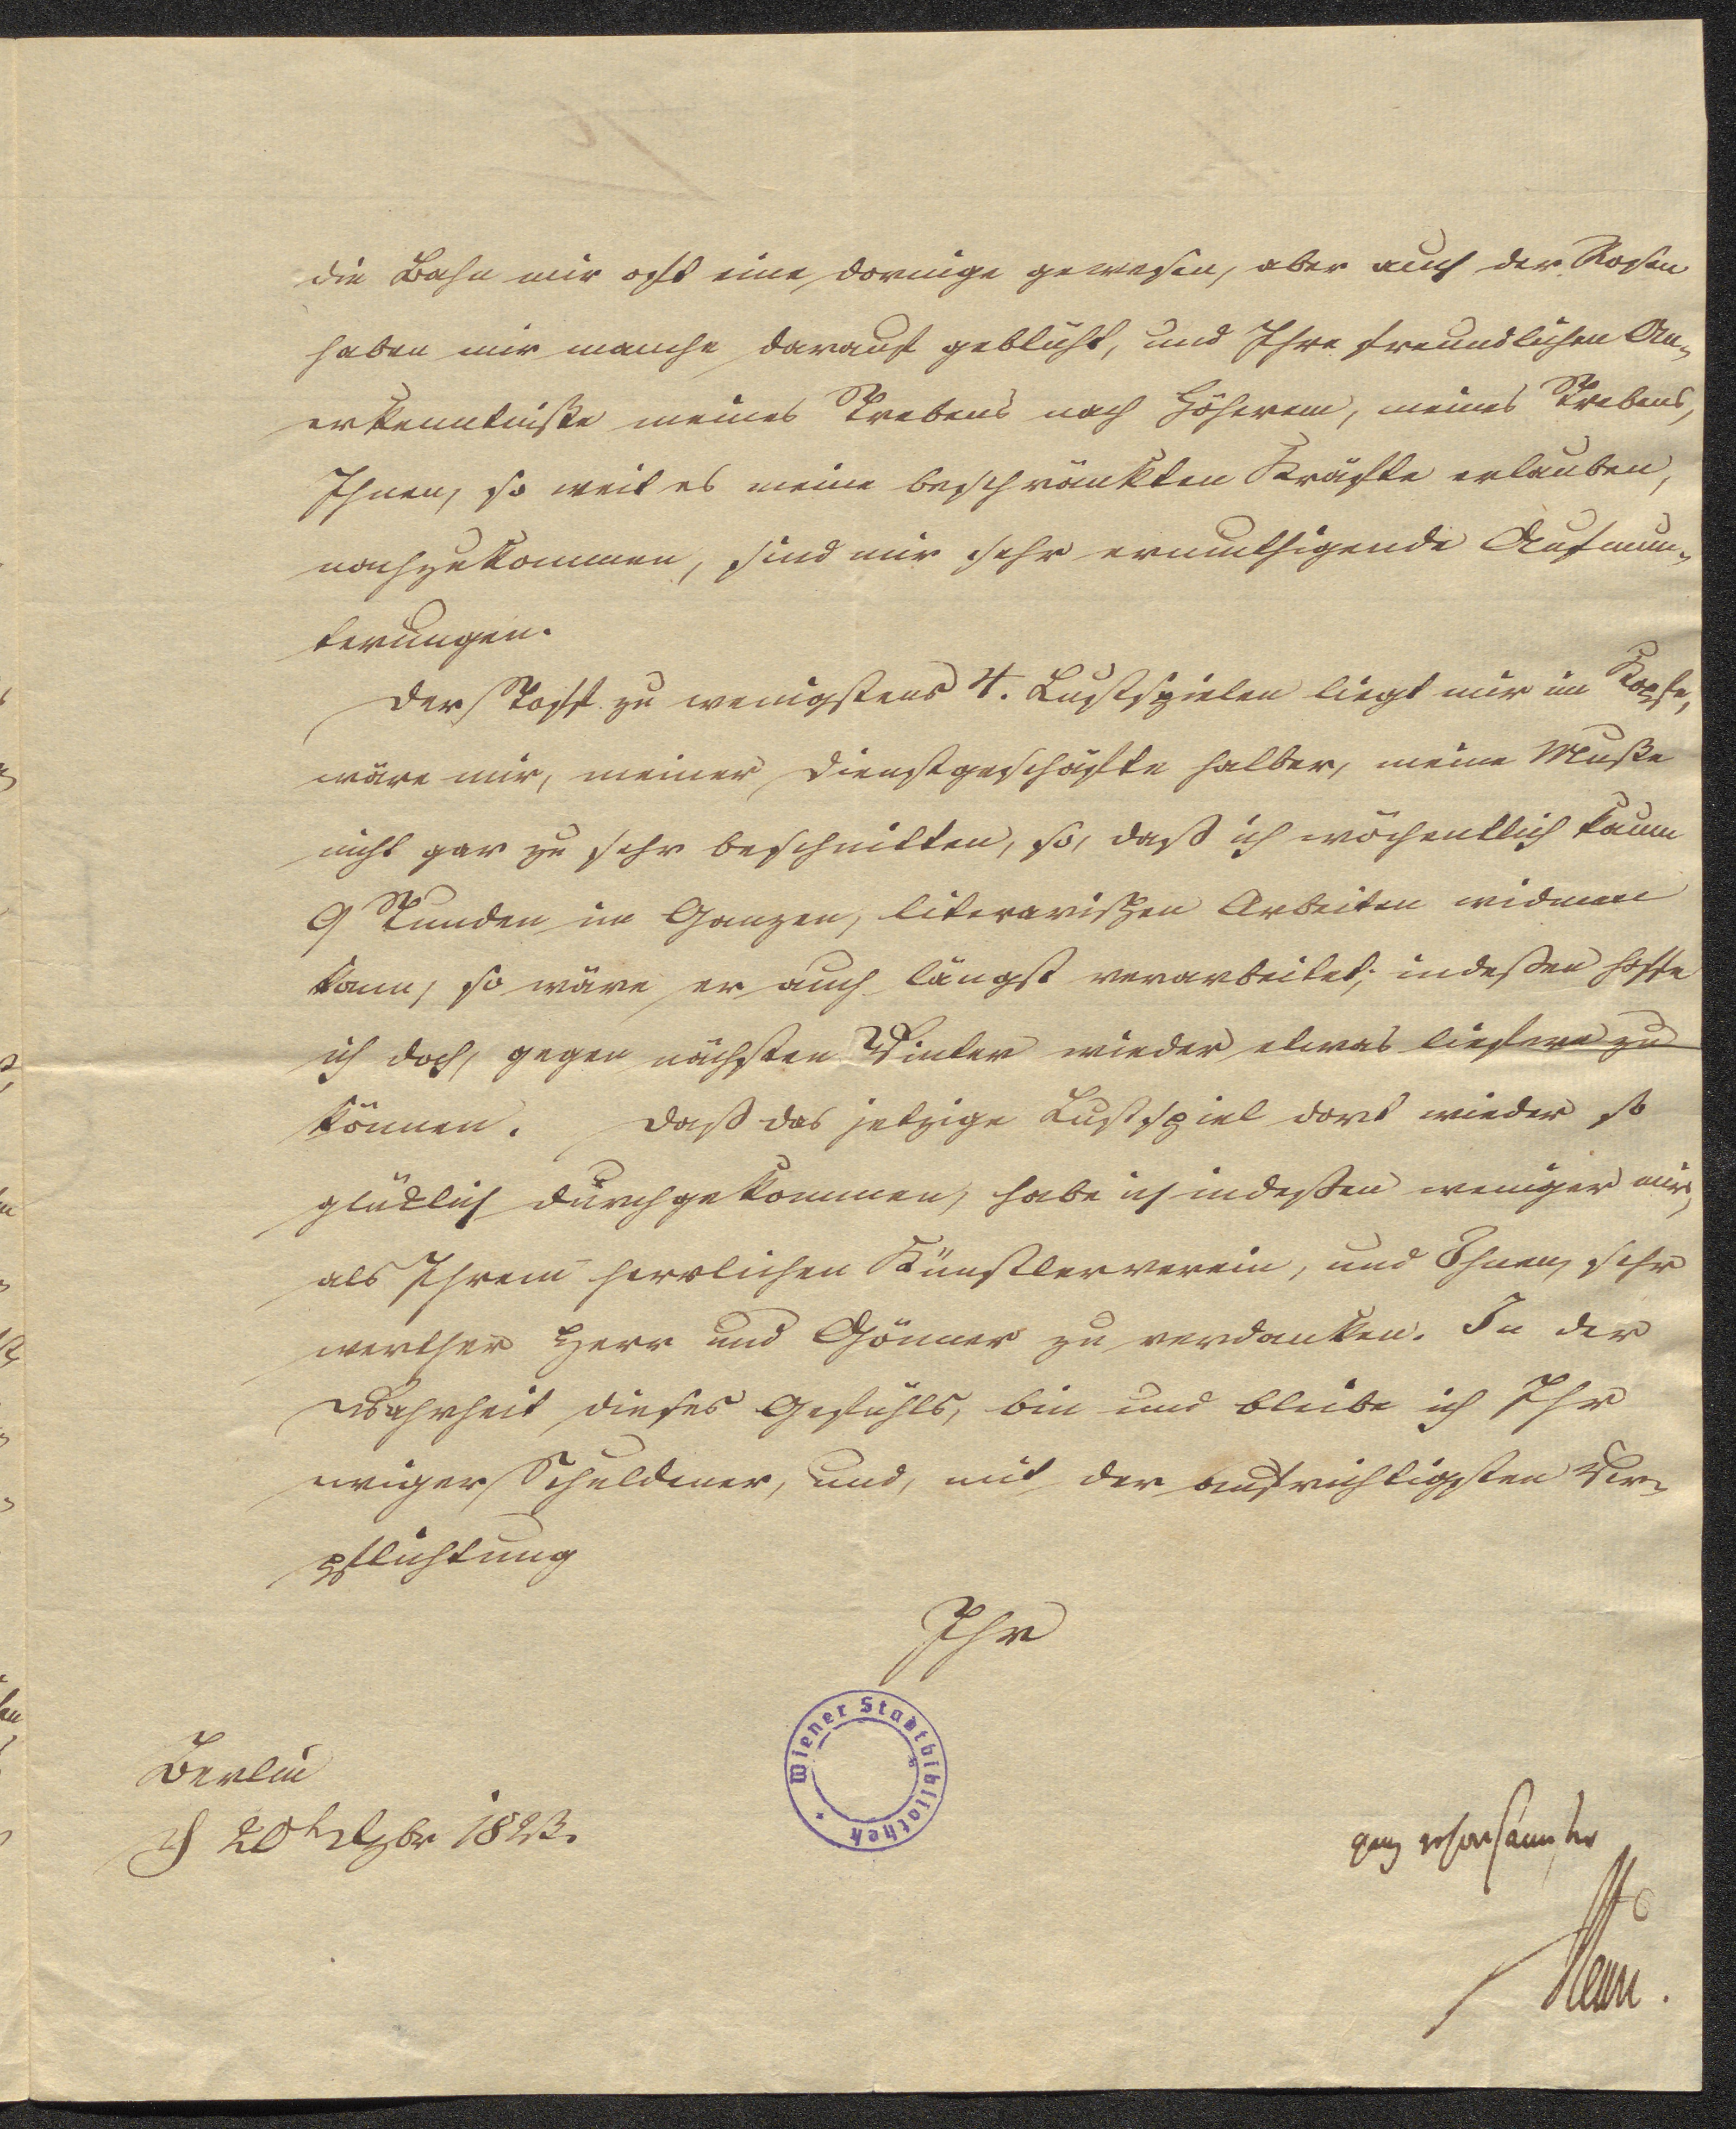 die Bahn mir oft eine dornige gewesen, aber auch der Rosen
haben mir manche darauf geblüht, und Ihre freundlichen An-
erkenntniße meines Strebens nach Höherem, meines Strebens,
Ihnen, so weit es meine beschränkten Kräfte erlauben,
nachzukommen, sind mir sehr ermuthigende Aufmun-
terungen.
Der Stoff zu wenigstens 4. Lustspielen liegt mir im Kopfe,
wäre mir, meiner Dienstgeschäfte halber, meine Muße
nicht gar zu sehr beschnitten, so, daß ich wöchentlich kaum
9 Stunden im Ganzen, literarischen Arbeiten widmen
kann, so wäre er auch längst verarbeitet; indeßen hoffe
ich doch, gegen nächsten Winter wieder etwas liefern zu
können. Daß das jetzige Lustspiel dort wieder so
glücklich durchgekommen, habe ich indeßen weniger mir,
als Ihrem herrlichen Künstlerverein, und Ihnen, sehr
werther Herr und Gönner zu verdanken. In der
Wahrheit dieses Gefühls, bin und bleibe ich Ihr
ewiger Schuldener, und, mit der aufrichtigsten Ver-
pflichtung
Ihr
Wiener Stadtbibliothek
Berlin
20 1823.
ganz gehorsamster